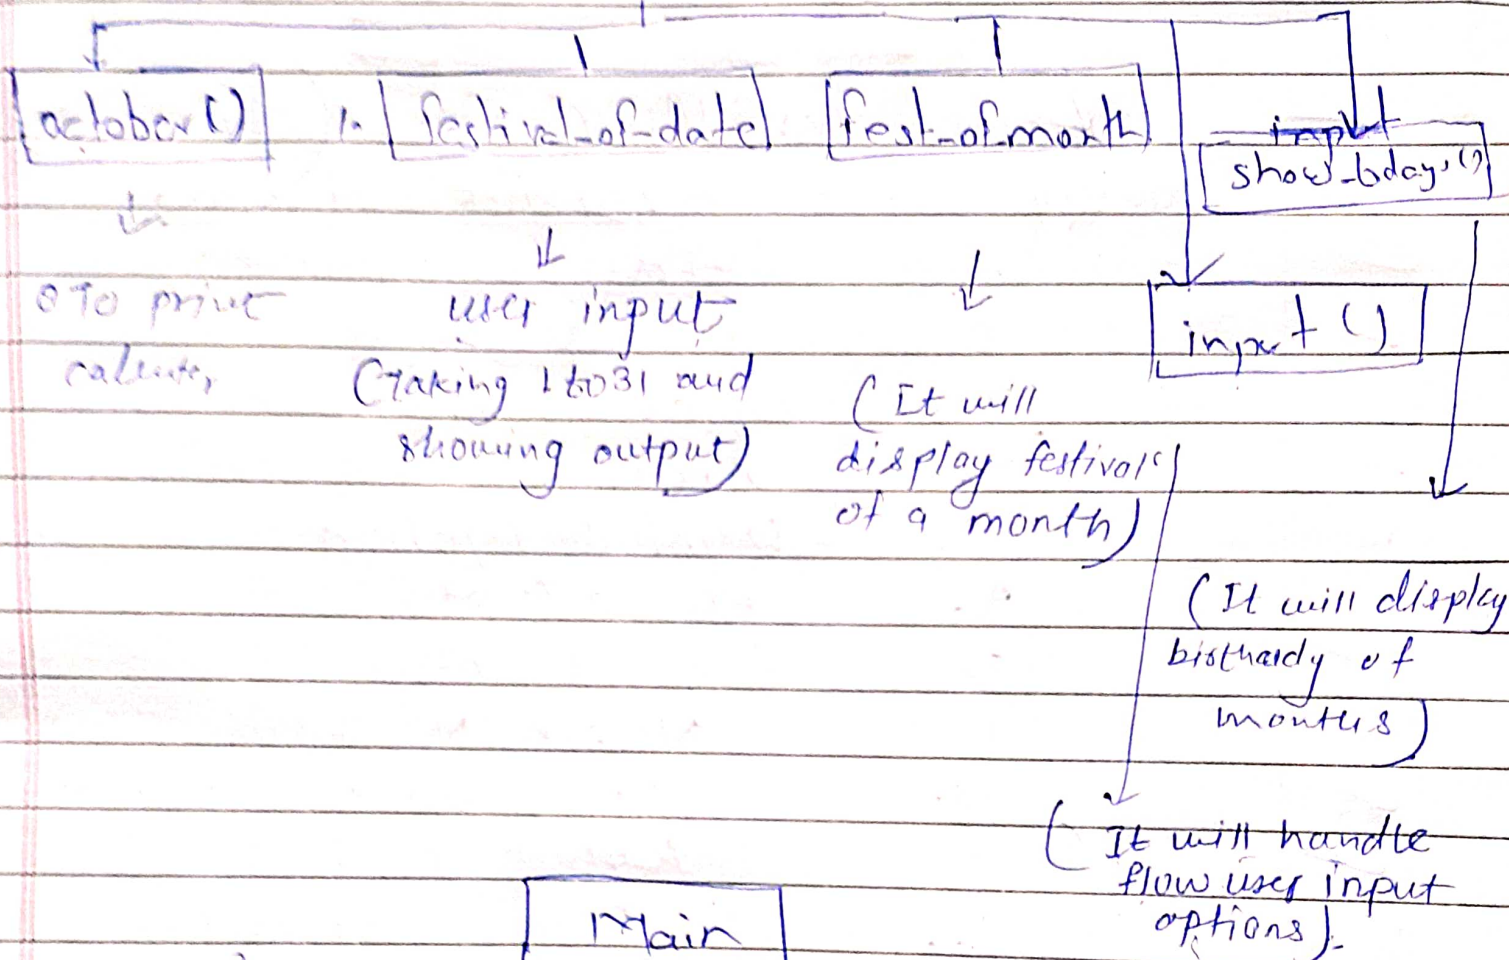 october ()
festival-of-date
fest-of-month
input
show-bday,()
input ()
To print
user input
(Taking 1 to 31 and
showing output)
(It will
display festivals
of a month)
(It will display
birthardy of
months)
(It will handle
flow user input
options).
Main